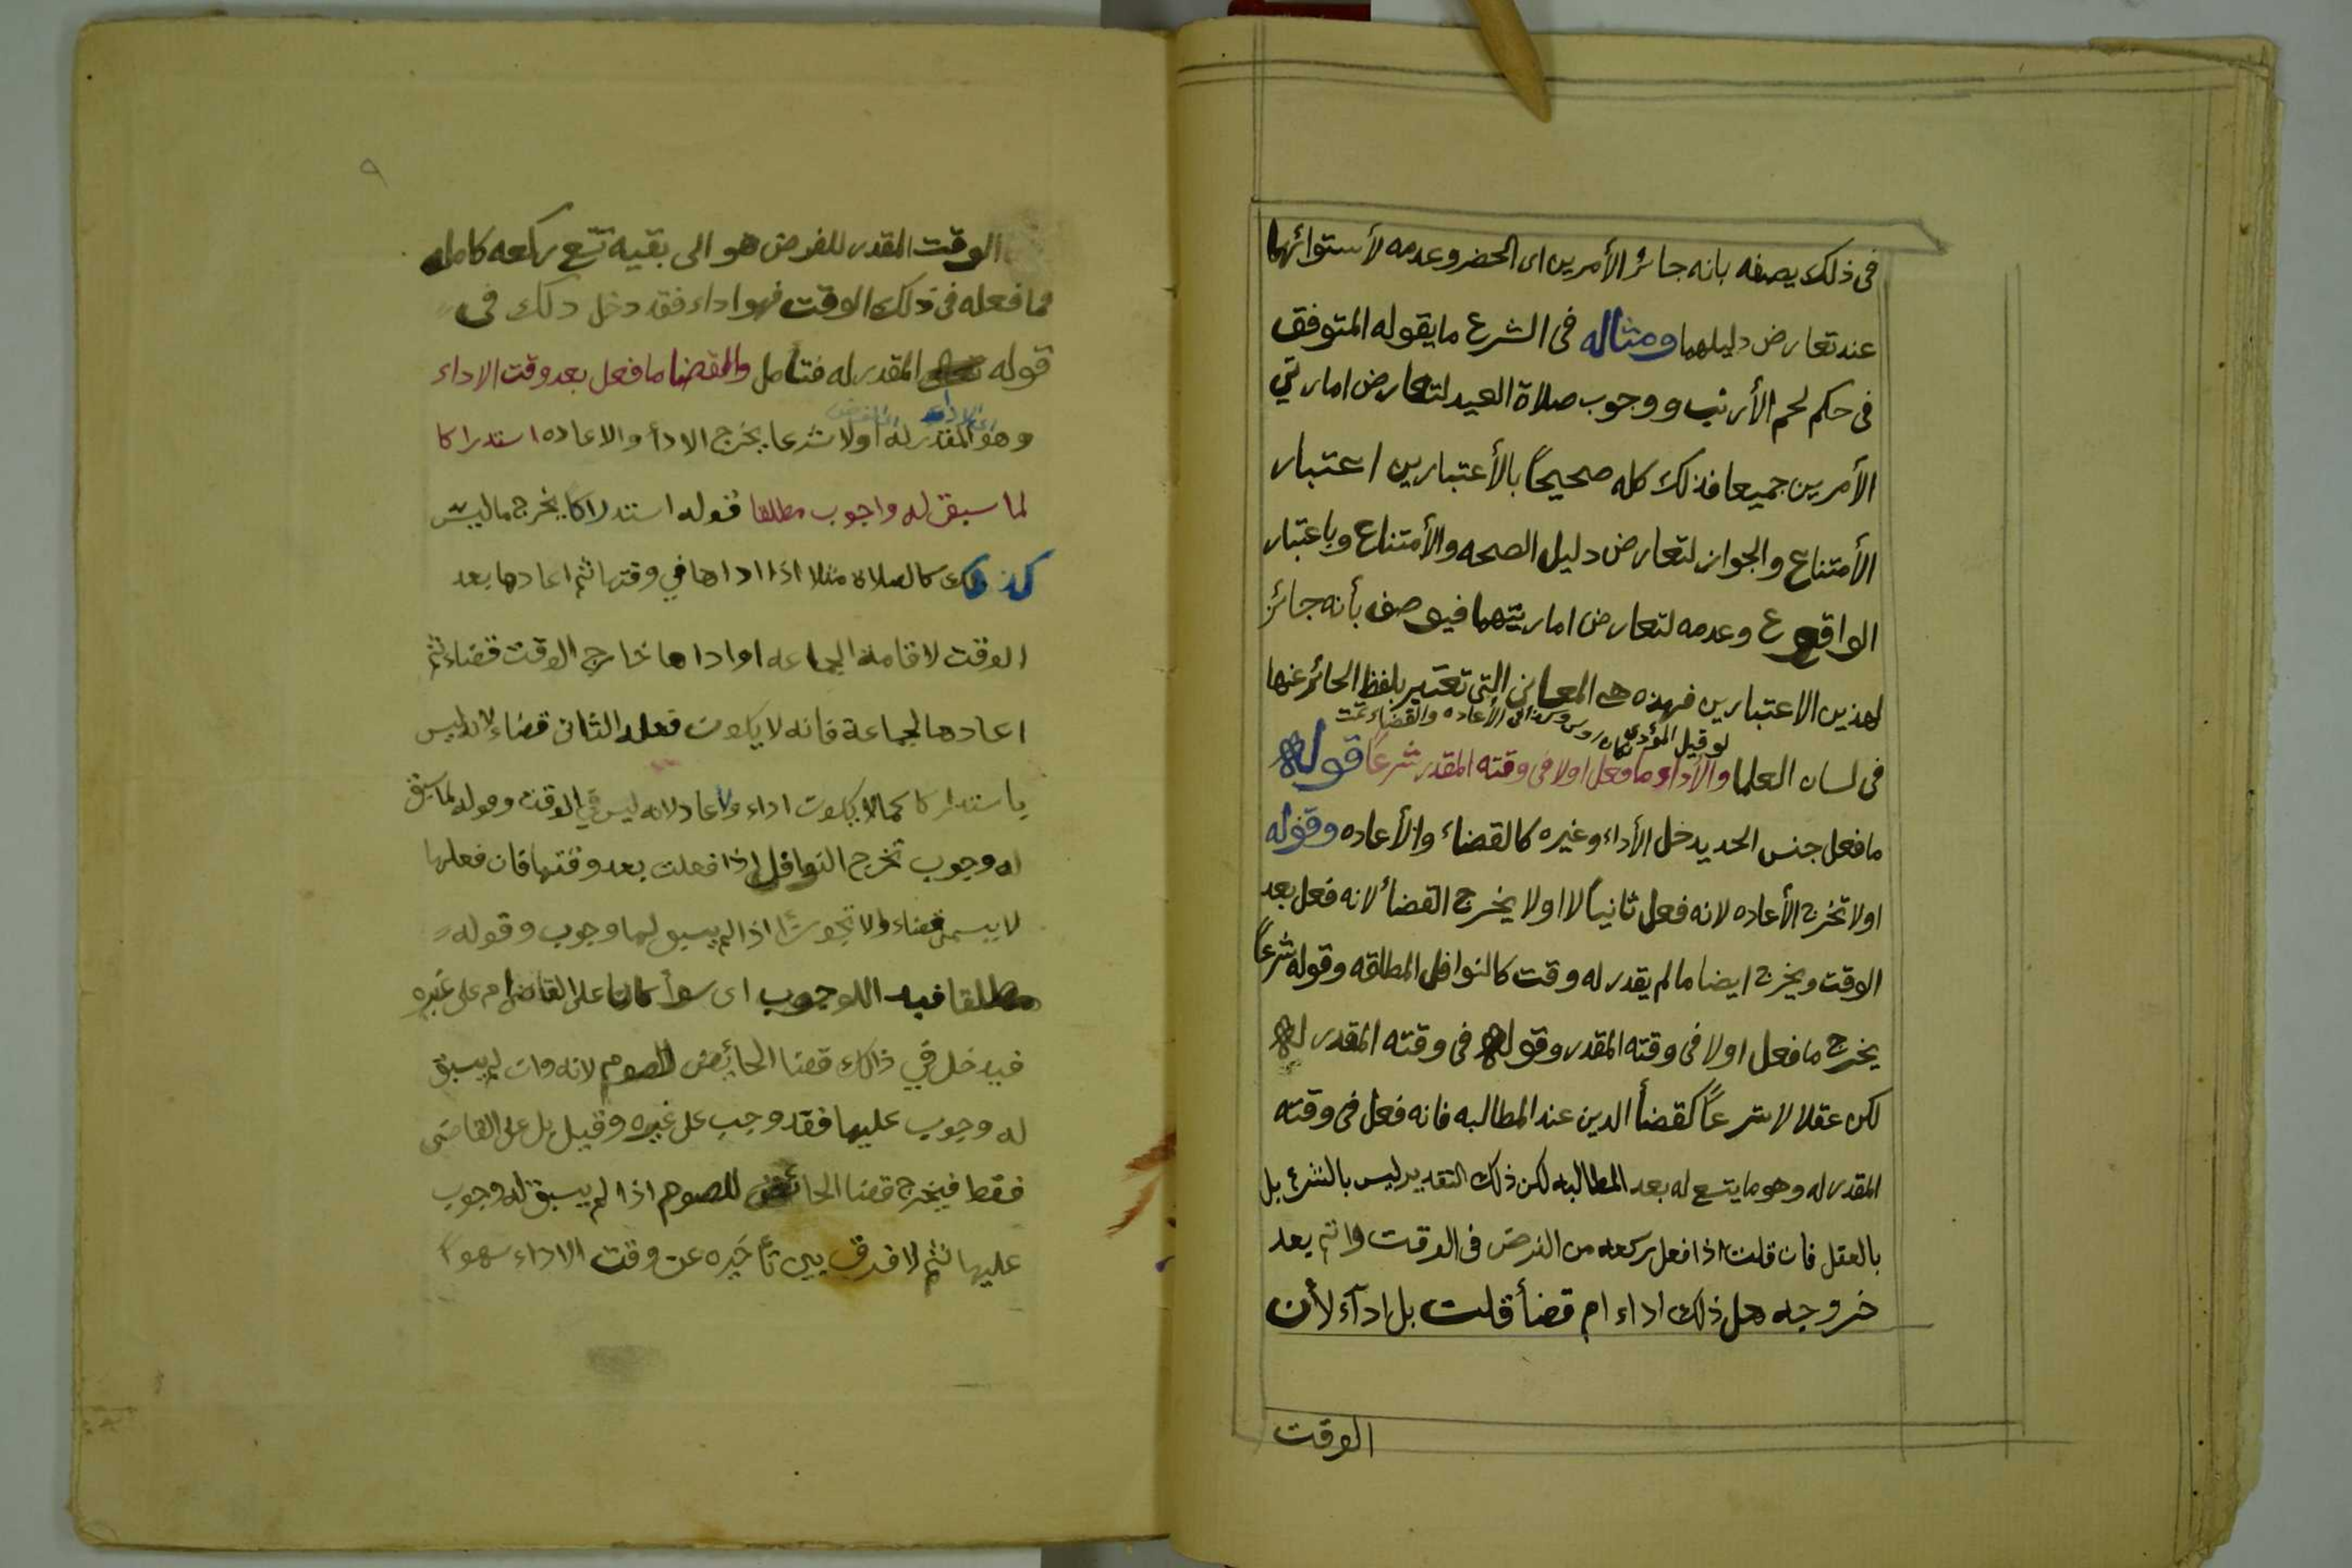 فى ذلك يصفه بانه جائز الأمرين اى الحضر وعدمه لأستوائهما
عند تعارض دليلهما ومثاله فى الشرع ما يقوله المتوقف
فى حكم لحم الأرنب ووجوب صلاة العيد لتعارض امارتي
الأمرين جميعا فذلك كله صحيحاً بالأعتبارين اعتبار
الأمتناع والجواز لتعارض دليل الصحه والأمتناع وباعتبار
الواقع وعدمه لتعارض امارتيهما فيوصف بأنه جائز
لهذين الاعتبارين فهذه هى المعانى التى تعتبر بلفظ الجائز عنها
لو قيل المؤدى كان الأعاده والقضاء تمت
فى لسان العلما والأداء ما فعل اولا فى وقته المقدر شرعاً قوله
ما فعل جنس الحد يدخل الأداء وغيره كالقضاء والأعاده وقوله
اولا تخرج الأعاده لانه فعل ثانياً لا اولا يخرج القضأ لانه فعل بعد
الوقت ويخرج ايضا ما لم يقدر له وقت كالنوافل المطلقه وقوله شرعاً
يخرج ما فعل اولا فى وقته المقدر وقوله فى وقته المقدر له
لكن عقلا لا شرعاً كقضأ الدين عند المطالبه فانه فعل فى وقته
المقدر له وهو ما يتسع له بعد المطالبه لكن ذلك التقدير ليس بالشرع بل
بالعقل فان قلت اذا فعل ركعه من الفرض فى الوقت واتم بعد
خروجه هل ذلك اداء ام قضأ قلت بل ادآء لأن
الوقت
٩
الوقت المقدر للفرض هو الى بقيه تتسع ركعه كامله
فما فعله فى ذلك الوقت فهو اداء فقد دخل ذلك فى
قوله المقدر له فتأمل والقضا ما فعل بعد وقت الاداء
وهو المقدر له اولا شرعا يخرج الادأ والاعاده استدراكا
لما سبق له واجوب مطلقا قوله استدراكاً يخرج ما ليس
كذلك كالصلاة مثلا اذا اداها في وقتها ثم اعادها بعد
الوقت لاقامة الجماعه او اداها خارج الوقت قضاء ثم
اعادها لجماعة فانه لا يكون فعله الثانى قضاء لانه ليس
باستدراكا كما لا يكون اداء ولا عاد لانه ليس في الوقت وقوله لما سبق
له وجوب تخرج النوافل اذا فعلت بعد وقتها فان فعلها
لا يسمى قضاء ولا تجوزاً اذا لم يسبق لها وجوب وقوله
مطلقا قيد اللوجوب اى سوأ كان على القاضى ام على غيره
فيدخل في ذالك قضا الحائض للصوم لانه وان لم يسبق
له وجوب عليها فقد وجب على غيره وقيل بل على القاضى
فقط فيخرج قضا الحائض للصوم اذا لم يسبق له وجوب
عليها ثم لا فرق بين تأخيره عن وقت الاداء سهواً